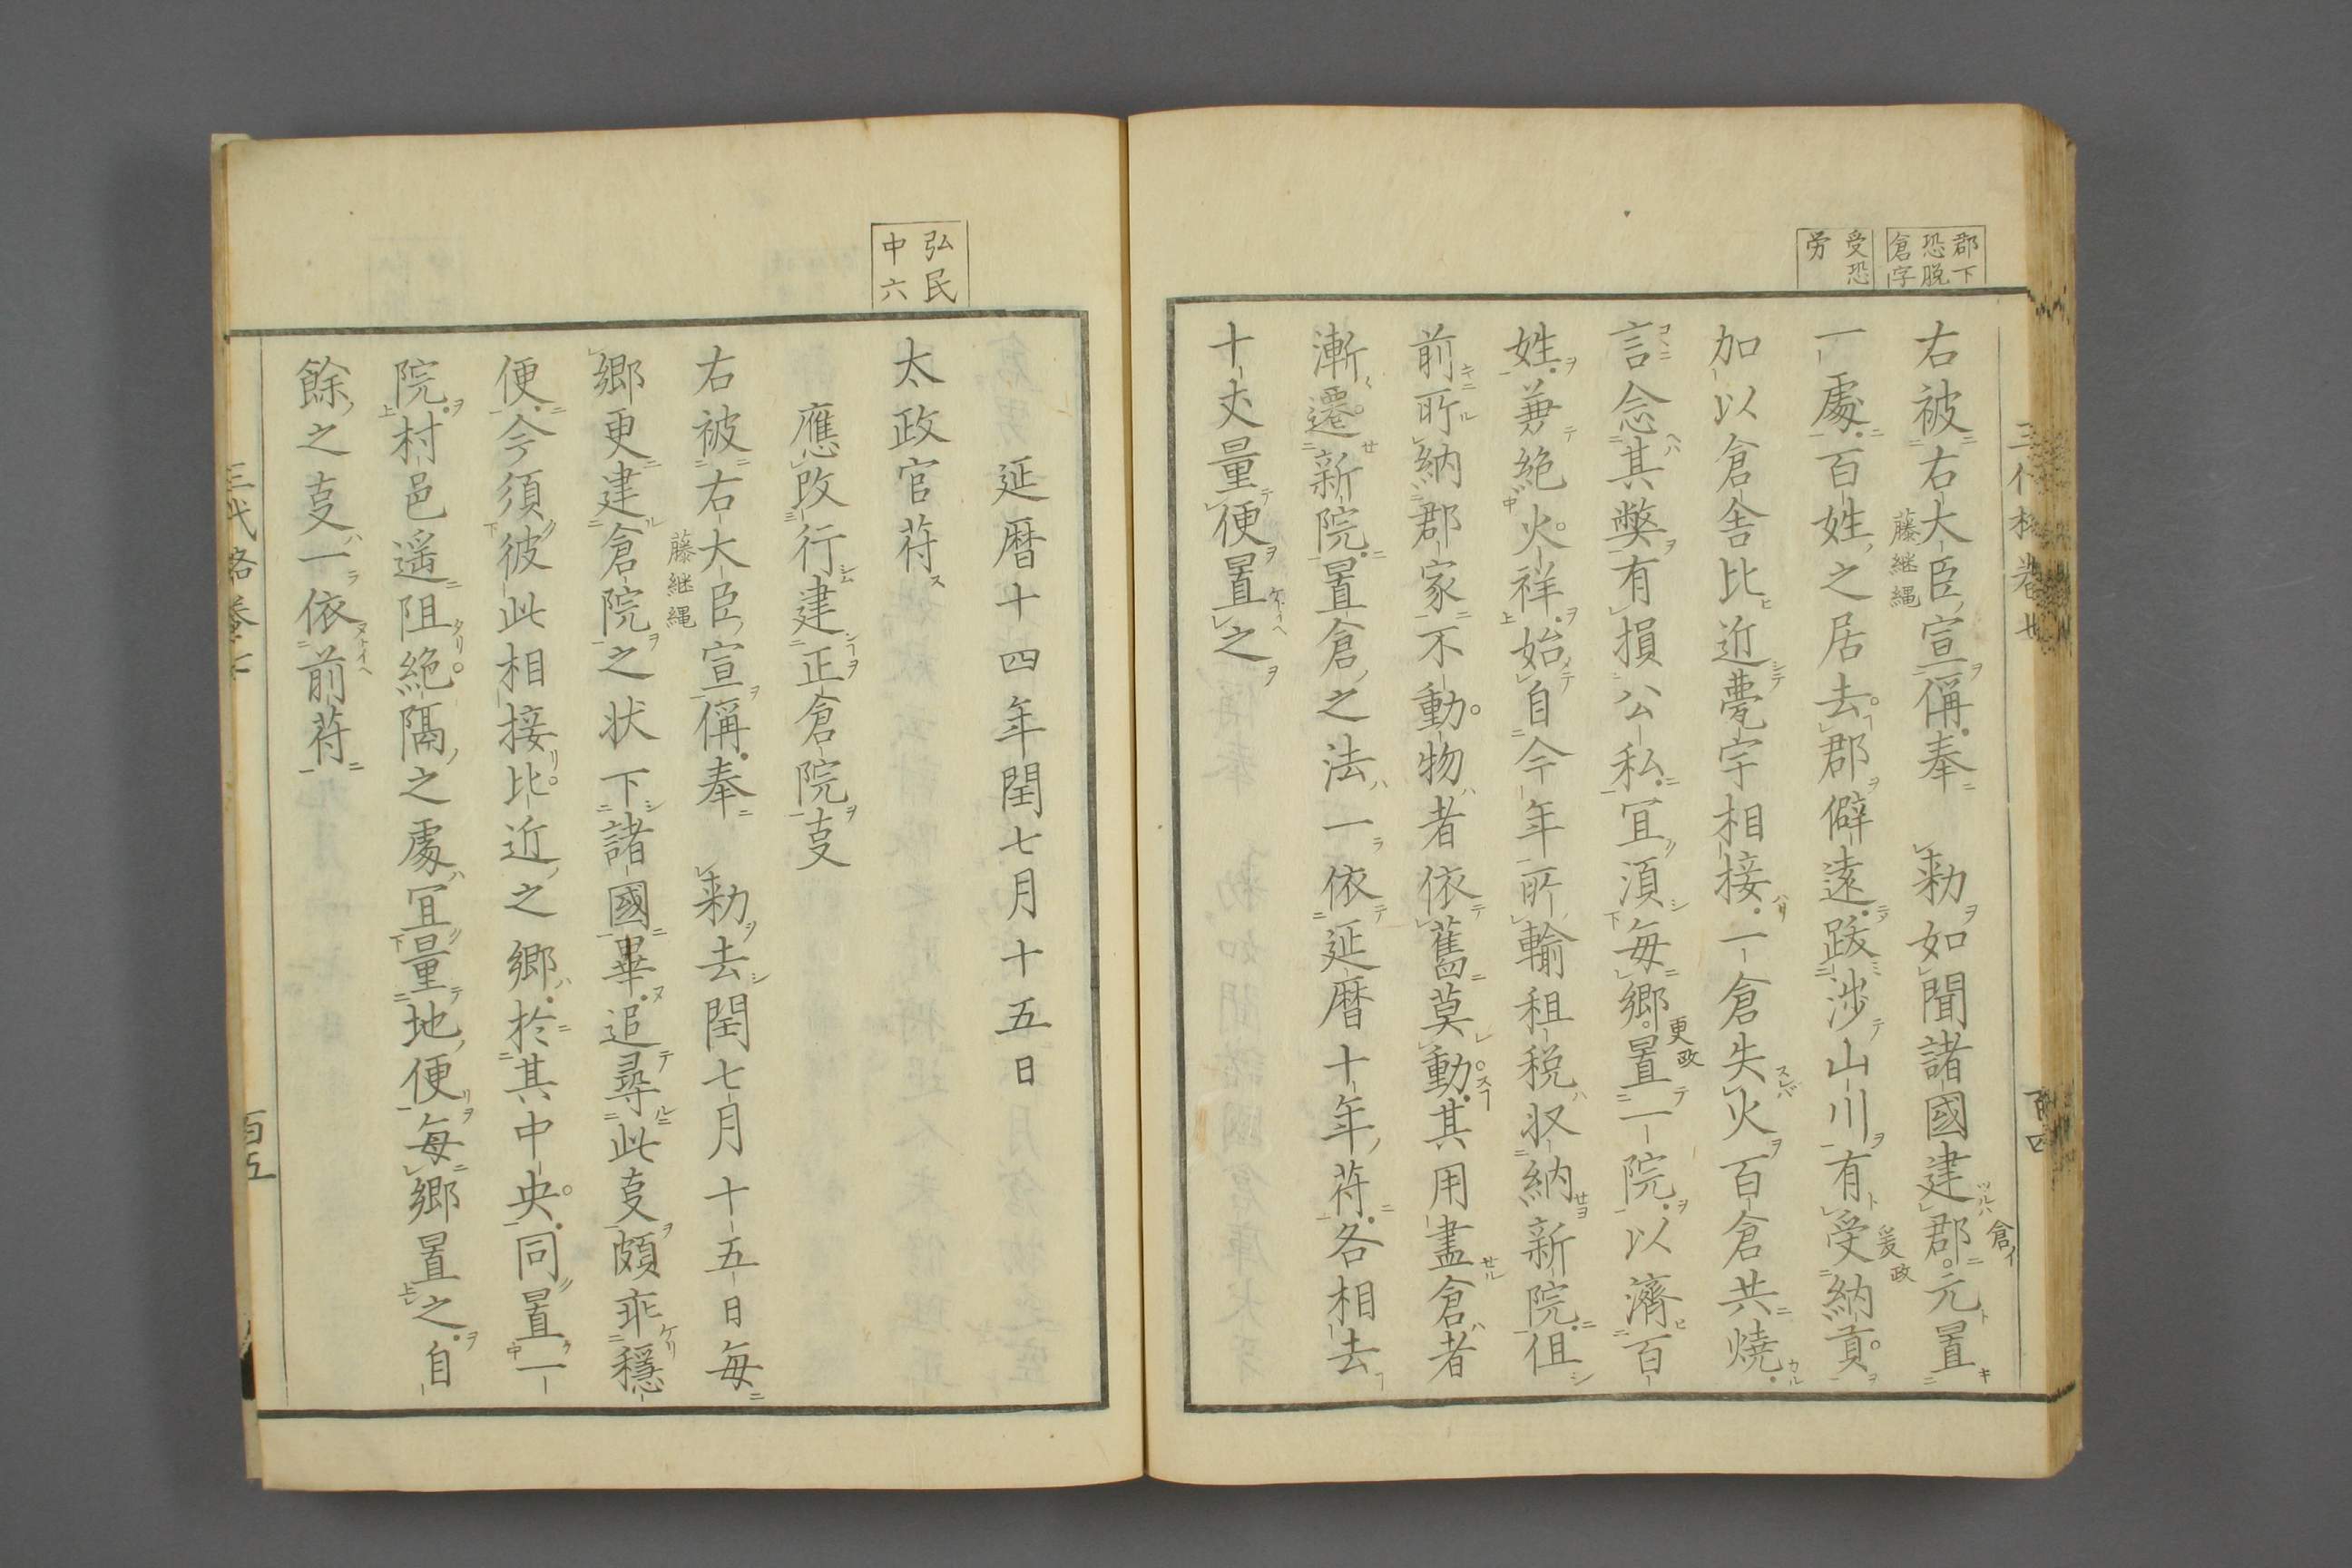 郡下
恐脱
倉字
受恐
労
右被右大臣宣偁奉　勅如聞諸國建郡元置
藤継縄
倉イ
一處百姓之居去郡僻遠跋涉山川有受納貢
爰政
加以倉舎比近甍宇相接一倉失火百倉共焼
言念其弊有損公私冝湏毎郷置一院以濟百
更政
姓兼絶火祥始自今年所輸租税収納新院但
前所納郡家不動物者依舊莫動其用盡倉者
漸遷新院置倉之法一依延暦十年符各相去
十丈量便置之
延暦十四年閏七月十五日
弘民
中六
太政官符
應改行建正倉院㕝
右被右大臣宣偁奉　勅去閏七月十五日毎
藤継縄
郷更建倉院之状下諸國畢追尋此㕝頗乖穏
便今須彼此相接比近之郷於其中央同置一
院村邑遥阻絶隔之處冝量地便毎郷置之自
餘之㕝一依前符
三代格巻
百五